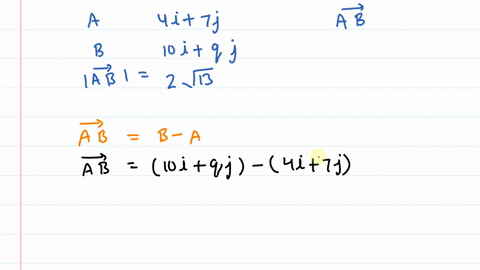 A 4i+7j $\overrightarrow{AB}$
B 10i+qj
|$\overrightarrow{AB}$| = 2√13
$\overrightarrow{AB}$ = B-A
$\overrightarrow{AB}$ = (10i+qj)-(4i+7j)